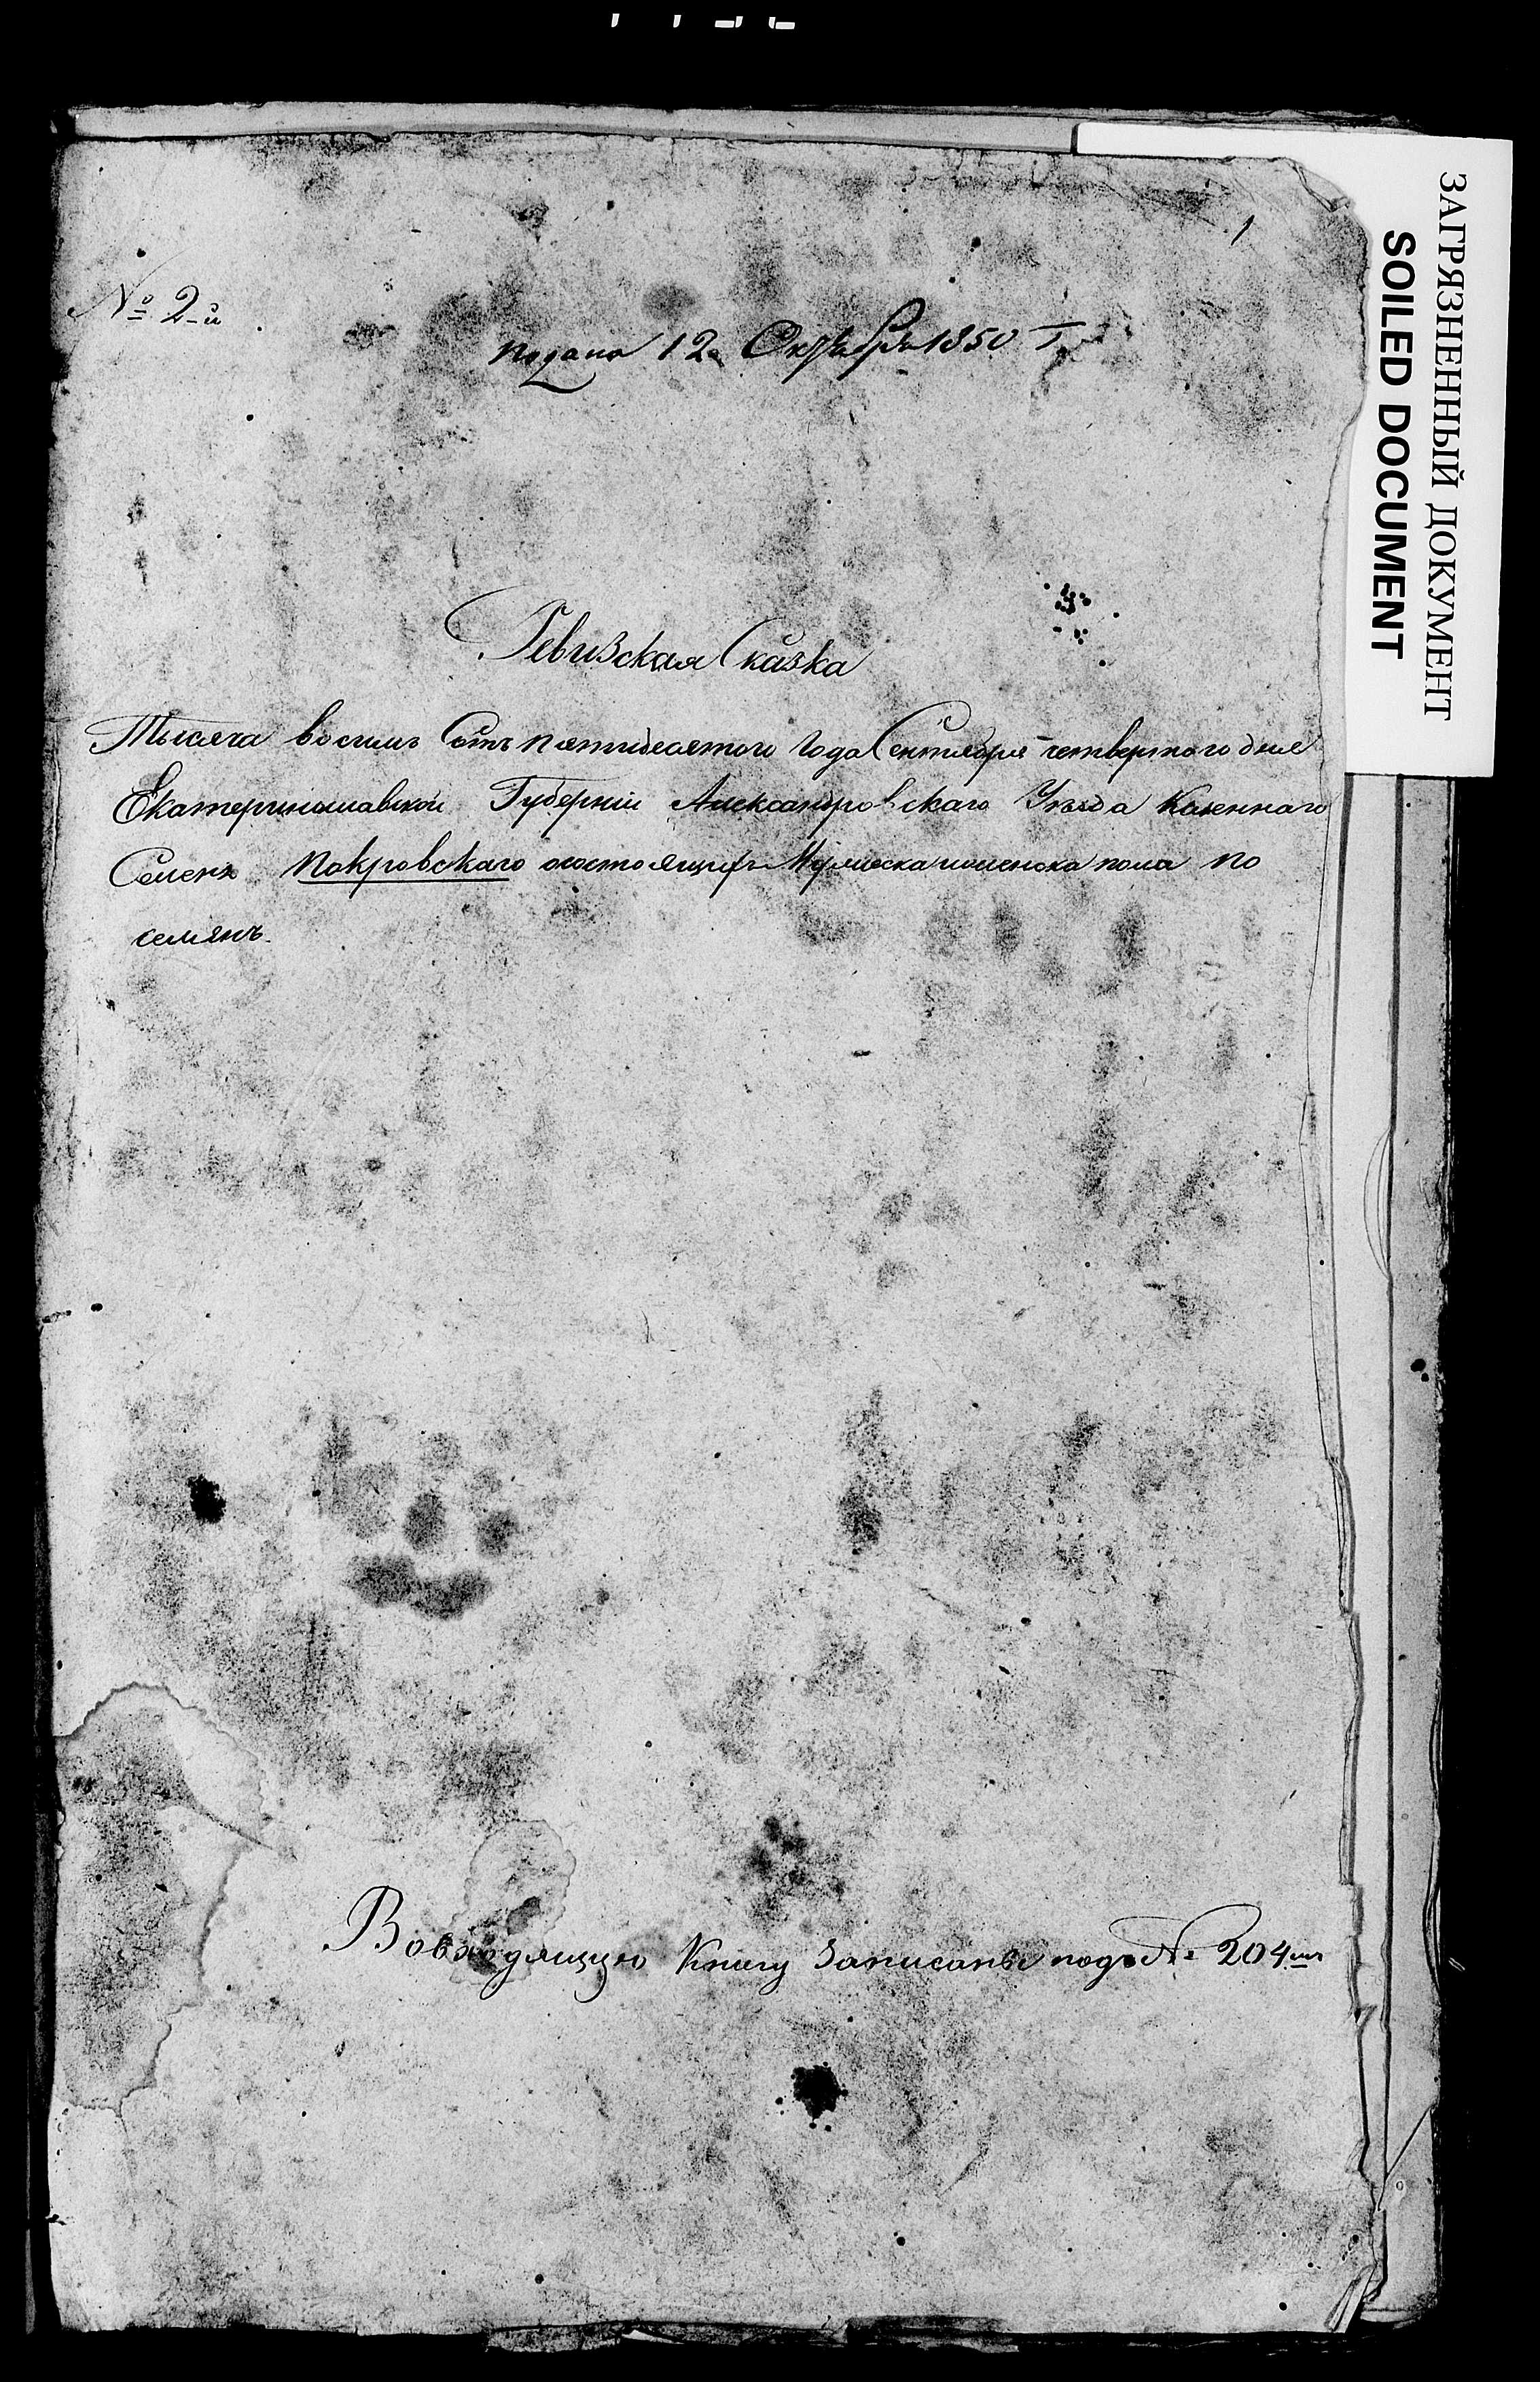 1
№ 2-й
подано 12 Октября 1850 г.
Ревизская Сказка
Тысяча восимь Сотъ пятидесятого года Сентября четвертого дня
Екатеринославской Губерніи Александровскаго Уезда Казеннаго
Селенія Покровскаго осостоящихъ Мужеска иженска пола по
семянъ.
Вовходящую Книгу Записаны подъ № 204мъ
ЗАГРЯЗНЕННЫЙ ДОКУМЕНТ
SOILED DOCUMENT